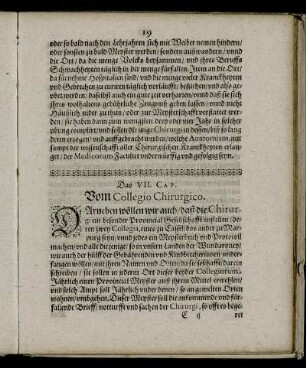 19
oder so bald nach den lehrjahren sich mit Weiber nemen hindern/
oder sonsten zu bald Meyster werden / sondern auß wandern / vnnd
die Ort / da die menge Volcks beysammen / vnd ihres Beruffs
Schwachheyten täglich in der menge fürfallen. Item an die Ort/
da fürnehme Hospitalien sind / vnd die menge vieler Kranckheyten
vnd Gebrechen zu curieren täglich vorläufft / besuchen / vnd also ge-
übt werden / daselbst auch ein gute zeit verharren / vnnd daß sie sich
ihres wolhaltens gebührliche Zeugnuß geben lassen / vnnd nicht
Häußlich nider zu thun / oder zur Meysterschafft verstattet wer-
den / sie haben dann zum wenigsten drey oder vier Jahr in solcher
übung compliret / vnd sollen die junge Chirurgi in dessen / biß so lang
deren ergangen / vnd auff gebracht worden / solche Annotomi, zu-
sampt der wissenschafft aller Chirurgischen Kranckheyten erlan-
get / der Medicorum Facultet vnderwürffig vnd gefolgig seyn.
Das VII. CAP.
Vom Collegio Chirurgico.
DArneben wöllen wir auch / daß die Chirur-
gi ein besonder Provincial Gesellschafft anstellen / de-
ren zwey Collegia, eines zu Cassel / das ander zu Mar-
purg seyn / vnnd jedes ein Meysterbuch vnd Protocoll
machen / vnd alle die jenige / so in vnsern Landen der Wundartzney/
wie auch der hülff der Gebährenden vnd Kindbetterinnen under-
fangen wöllen / mit ihren Namen vnd Orten / da sie seßhafftig / darein
schreiben / sie sollen in jedem Ort dieser beyder Collegiorum,
Jährlich einen Provincial Meyster auß ihrem Mittel erwehlen/
vnd solch Ampt soll Jährlich vnder denen / so an gemelten Orten
wohnen / ombgehen. Dieser Meyster soll die ankommende vnd für-
fallende Brieff / notturfft vnd sachen der Chirurgi, so offt es bege-
C ij
ret